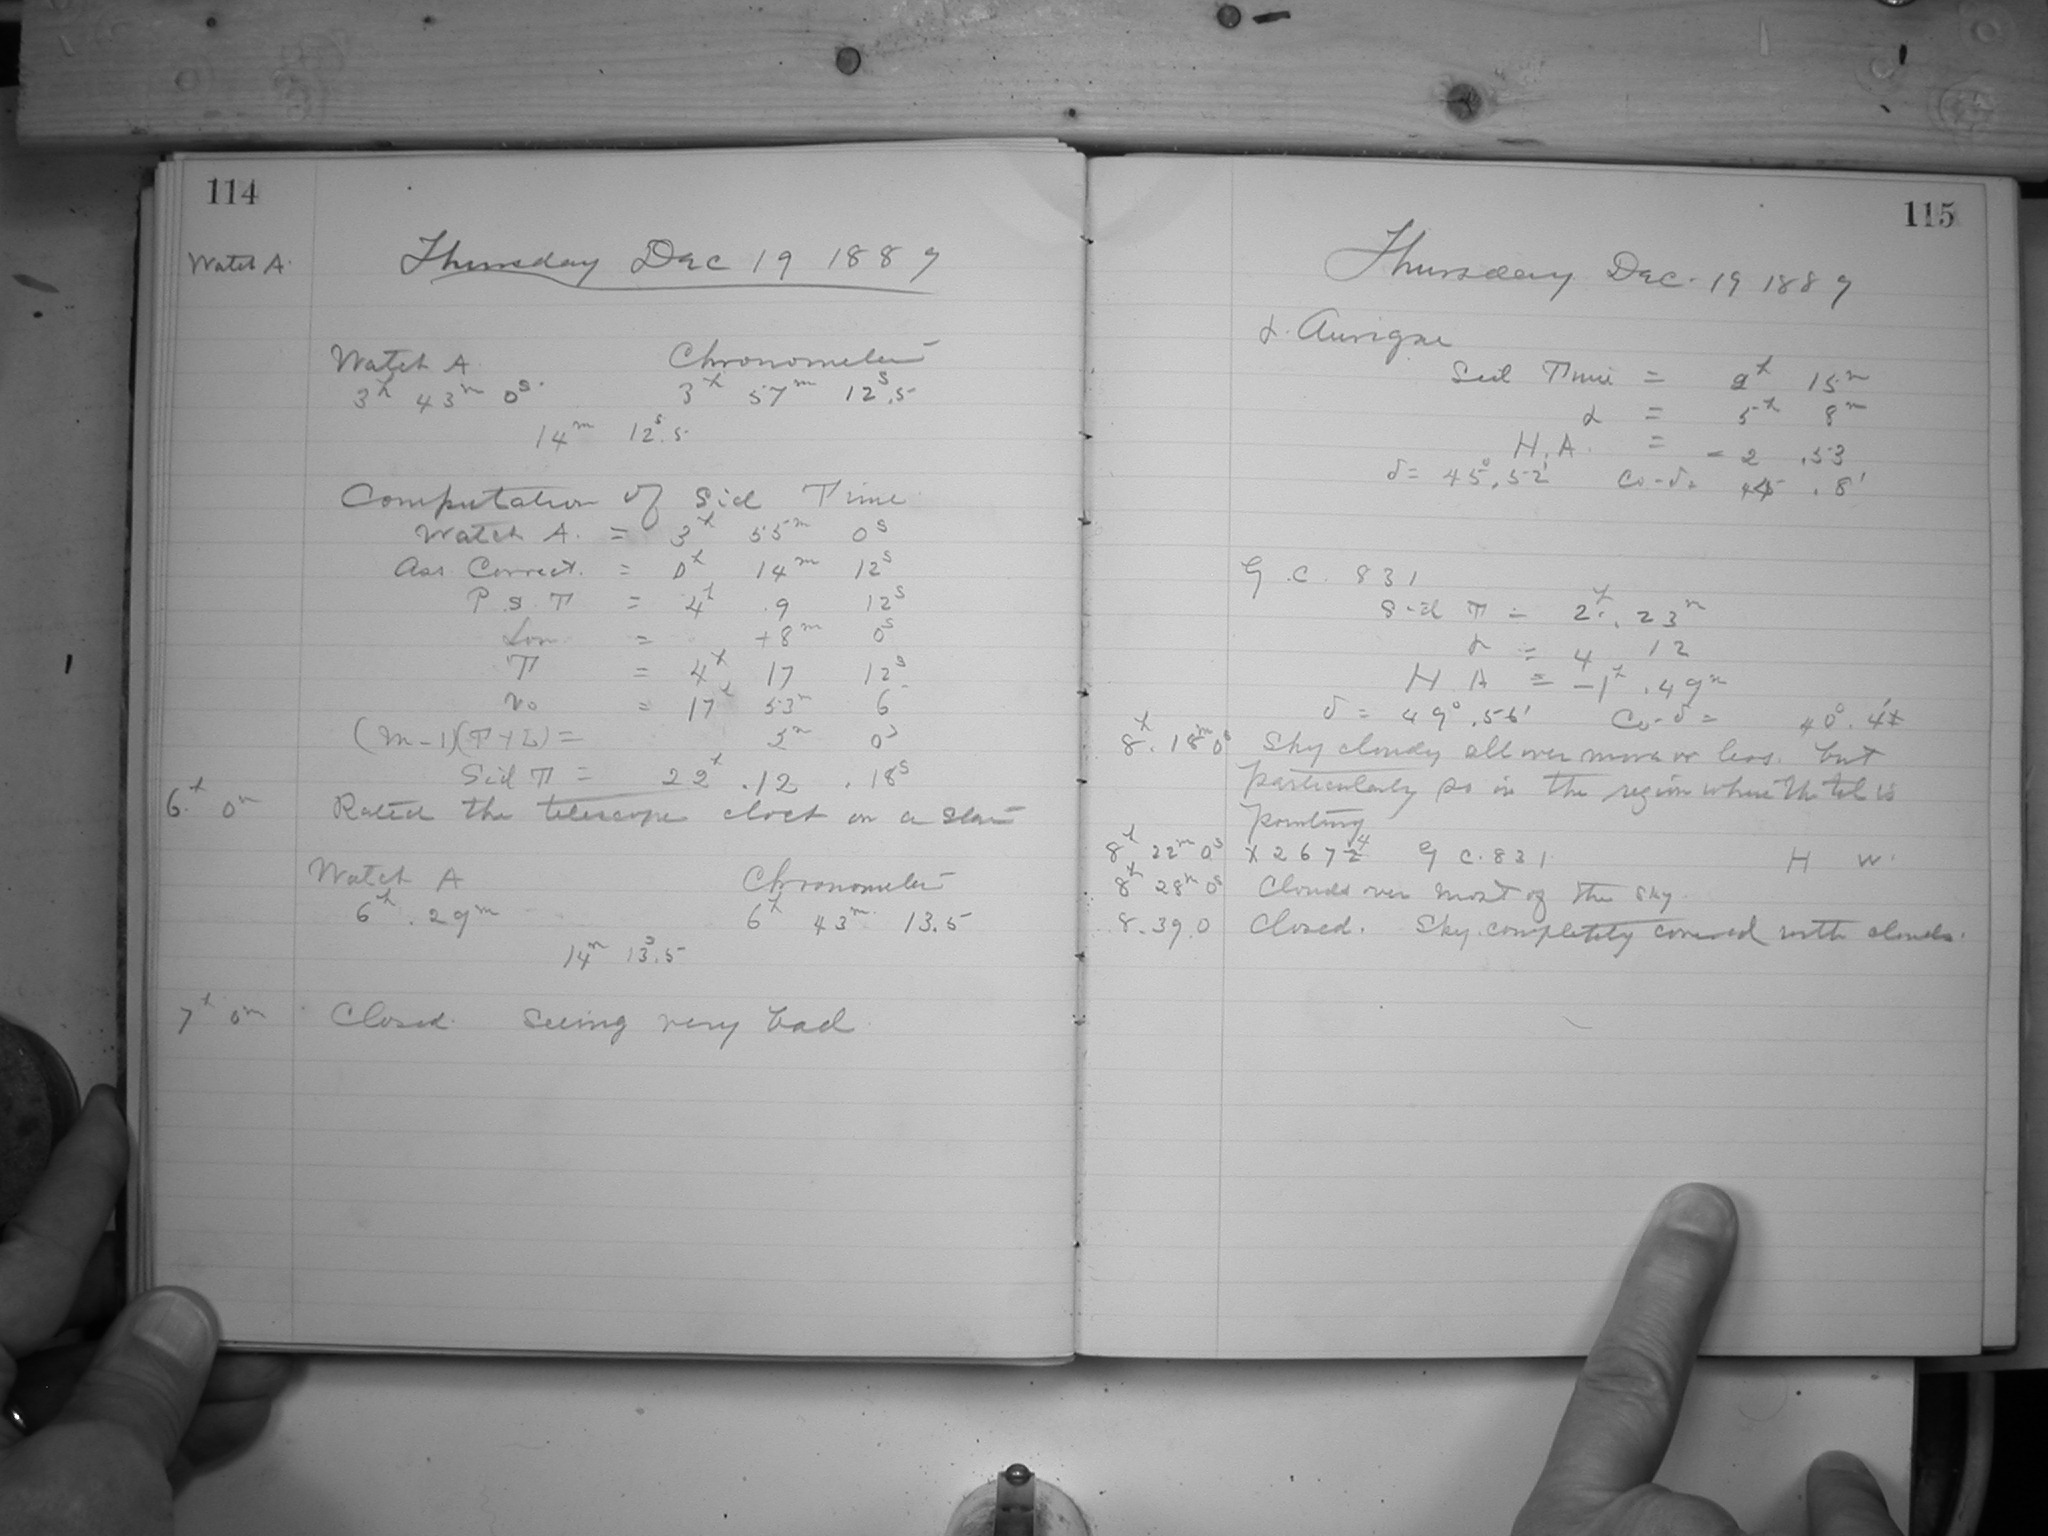 114
Watch A.
Thursday Dec 19 1889
Watch A. Chronometer
3h 43m 0s. 3h 57m 12s.5
14m 12s.5
Computation of Sid Time
Watch A. = 3h 55m 0s
Ass. Correct. = 0h 14m 12s
P.S.T = 4h .9 12s
Lon = +8m 0s
T = 4h 17 12s
V0 = 17h 53m 6
(m-1)(T+L) = 2m 0s
Sid T = 22h .12 .18s
6.h 0m Rated the telescope clock on a star
Watch A Chronometer
6h .29m 6h 43m 13.5
14m 13s.5
7h 0m Closed. Seeing very bad.
115
Thursday Dec. 19 1889
α. Aurigae
Sid Time = 2h 15m
α = 5h 8m
H.A. = -2 .53
δ = 45°.52' Co-δ = 44 .8'
G.C. 831
Sid T = 2h.23m
α = 4 12
H A = -1h .49m
δ = 49°.56' Co-δ = 40°.4'
8h.18m0s Sky cloudy all over more or less. but
particularly so in the region where the tel is
pointing
8h 22m 0s X 2674 G C.831 H W.
8h 28m 0s Clouds over most of the sky.
8.39.0 Closed. Sky completely covered with clouds.